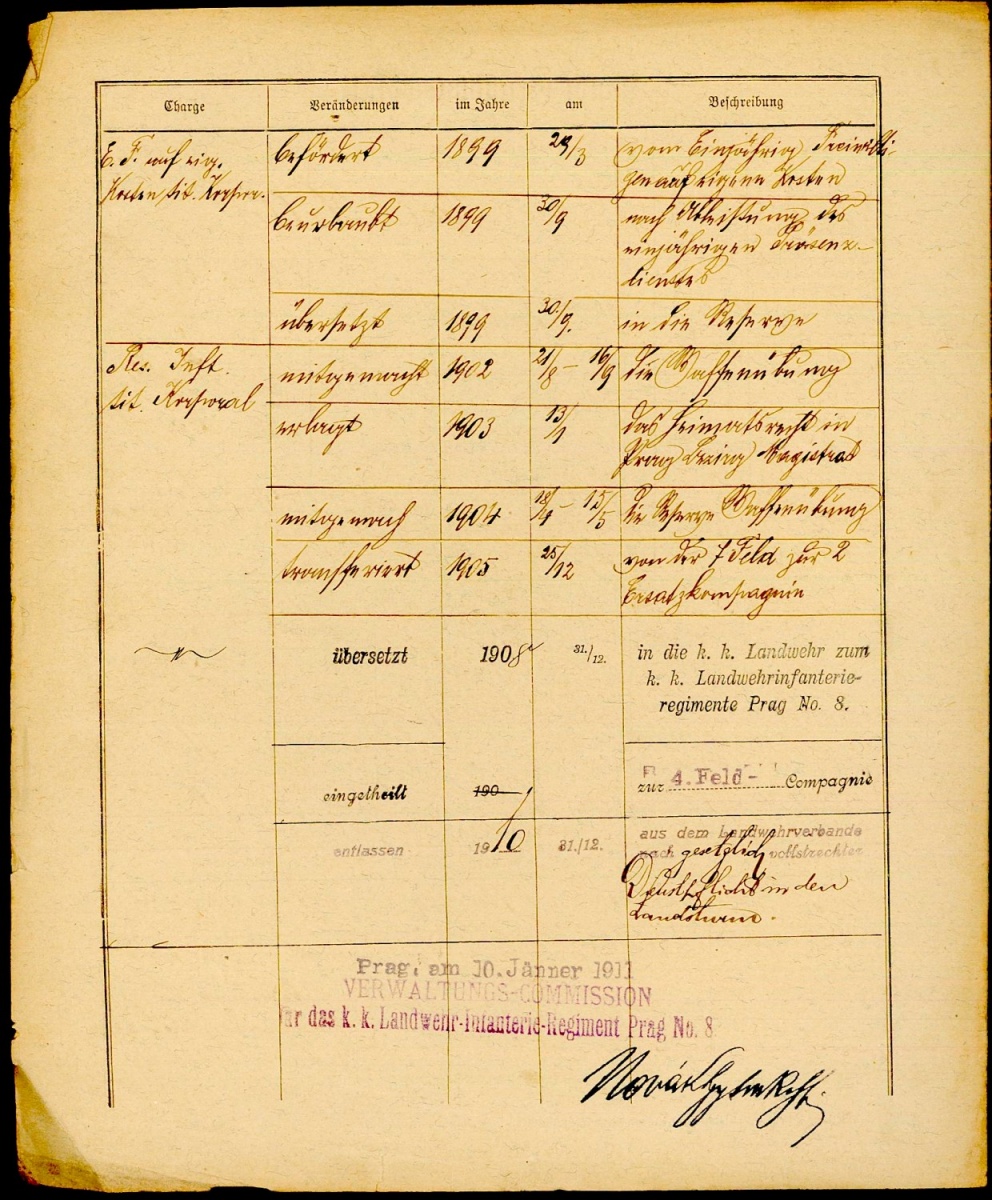 Charge Veränderungen im Jahre am Beschreibung
E. F. auf eig. befördert 1899 29/3 vom Einjährig Freiwilli-
Kosten tit. Korpor. gen auf eigene Kosten
beurlaubt 1899 30/9 nach Ableistung des
einjährigen Präsenz-
dienstes
übersetzt 1899 30/9. in die Reserve
Res. Inft. mitgemacht 1902 21/8 - 16/9 die Waffenübung
tit. Korporal
erlagt 1903 13/1 das Heimatsrecht in
Prag Magistrat
mitgemach 1904 18/4 - 15/5 die Reserve Waffenübung
transferiert 1905 25/12 von der 7 Feld zur 2
Ersatzkompagnie
übersetzt 1908 31./12. in die k. k. Landwehr zum
k. k. Landwehrinfanterie-
regimente Prag No. 8.
eingetheilt 190 zur 4. Feld- Compagnie
entlassen 1910 31./12. aus dem Landwehrverbande
nach gesetzlich vollstreckter
Dienstpflicht in den
Landsturm.
Prag, am 10. Jänner 1911
VERWALTUNGS-COMMISSION
für das k. k. Landwehr-Infanterie-Regiment Prag No. 8
Novák